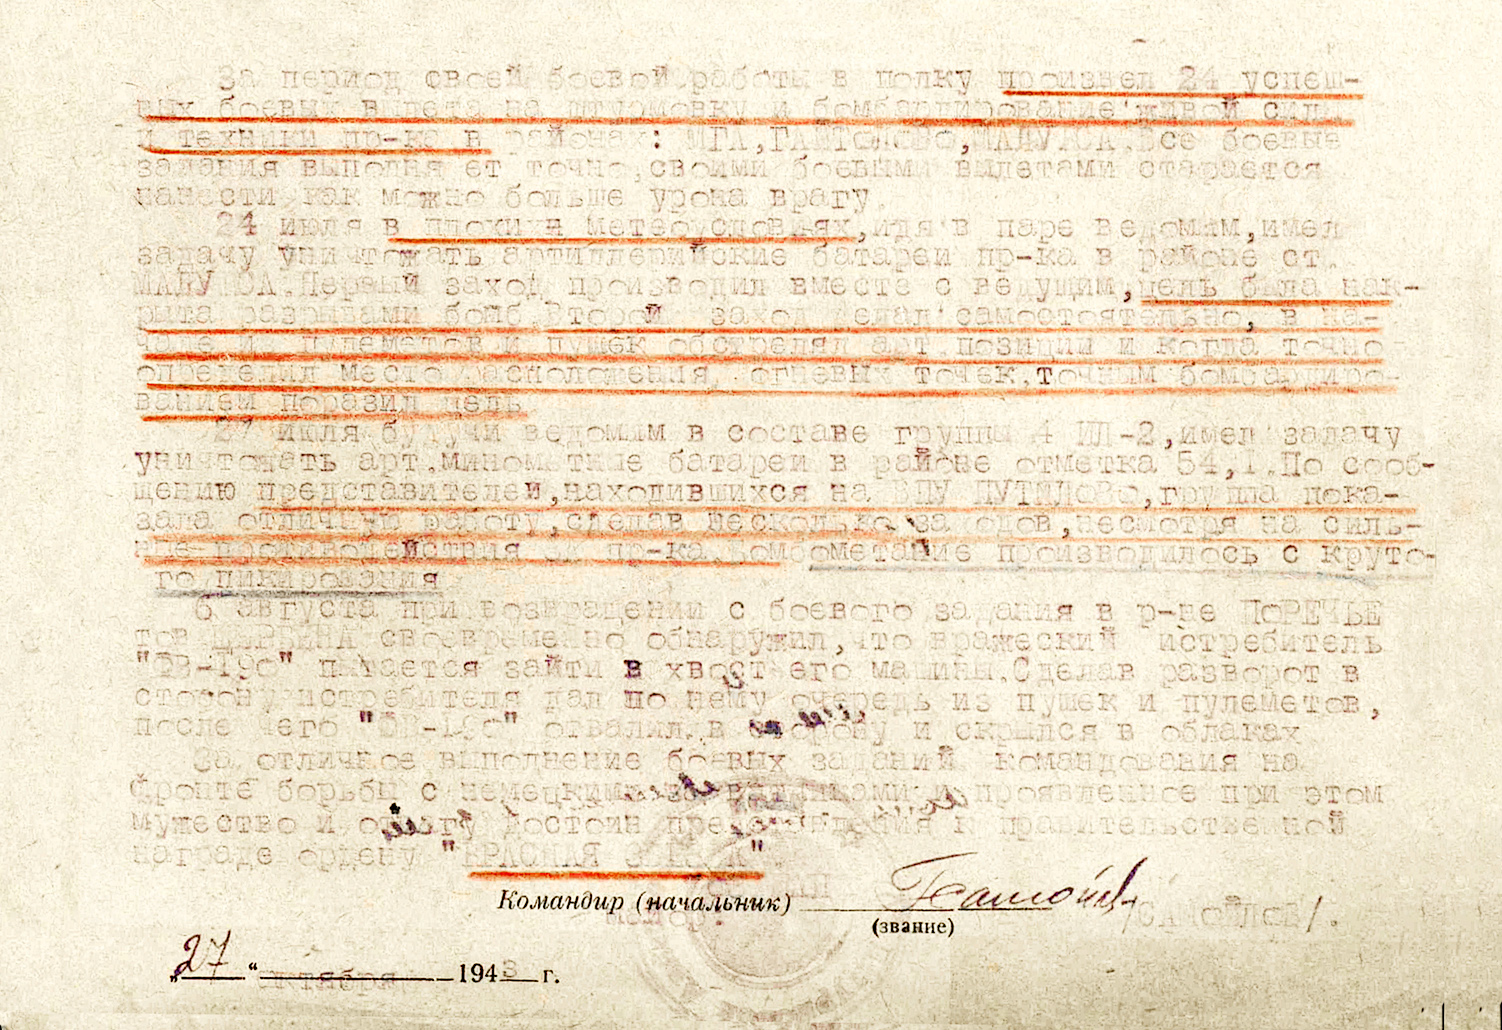 За период своей боевой работы в полку произвел 24 успеш-
ных боевых вылета на штурмовку и бомбардирование живой силы
и техники пр-ка в районах: МГА,ГАЙТОЛОВО,МАЛУКСА.Все боевые
задания выполняет точно,своими боевыми вылетами старается
нанести как можно больше урона врагу.
24 июля в плохих метеоусловьях,идя в паре ведомым,имел
задачу уничтожать артиллерийские батареи пр-ка в районе ст.
МАЛУКСА.Первый заход производил вместе с ведущим,цель была нак-
рыта разрывами бомб.Второй заход делал самостоятельно, в на-
чале из пулеметов и пушек обстрелял арт.позиции и когда точно
определил место расположения огневых точек,точным бомбардиро-
ванием поразил цель.
27 июля будучи ведомым в составе группы 4 ИЛ-2,имел задачу
уничтожать арт.минометные батареи в районе отметка 54,1.По сооб-
щению представителей,находившихся на ВПУ ПУТИЛОВО,группа пока-
зала отличную работу,сделав несколько заходов,несмотря на силь-
ные противодействия ЗА пр-ка.Бомбометание производилось с круто-
го пикирования
6 августа при возвращении с боевого задания в р-не ПОРЕЧЬЕ
тов своевременно обнаружил,что вражеский истребитель
"ФВ-190" пытается зайти в хвост его машины.Сделав разворот в
сторону истребителя дал по нему очередь из пушек и пулеметов,
после чего "ФВ-190" отвалил в сторону и скрылся в облаках
За отличное выполнение боевых заданий командования на
фронте борьбы с немецкими захватчиками и проявленное при этом
мужество и отвагу достоин представления к правительственной
награде ордену "КРАСНАЯ ЗВЕЗДА".
Командир (начальник)
майор
/САМОЙЛОВ/.
(звание)
„27“ октября 1943 г.